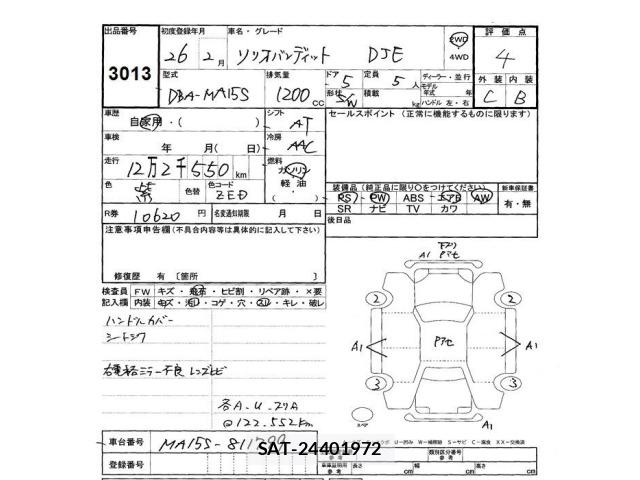 出品番号 3013
初度登録年月 26年 2月
車名・グレード ソリオバンディット DJE
2WD
4WD
評価点 4
型式 DBA-MA15S
排気量 1200 cc
ドア 5
形状 S/W
定員 5 人
積載 kg
ディーラー・並行
モデル年式 年
ハンドル 左・右
外装 C
内装 B
車歴 自家用・( )
シフト AT
セールスポイント(正常に機能するものに限ります)
車検 年 月( 日)
冷房 AAC
走行 12万2千550 km
燃料 ガソリン
軽油
( )
色 紫
色替
色コード ZED
装備品(純正品に限り○をつけてください)
PS PW ABS エアB AW
SR ナビ TV カワ
新車保証書
有・無
R券 10620 円
名変通知期限 月 日
後日品
注意事項申告欄(不具合内容等は具体的に記入して下さい)
修復歴 有 〔箇所 〕
検査員記入欄
FW キズ・飛石・ヒビ割・リペア跡・×要
内装 キズ・汚れ・コゲ・穴・スレ・キレ・破レ
ハンドルカバー
シートシワ
右電格ミラー不良 レンズヒビ
各A.U.スリA
@122.552km
A1 アセ
2 2
A1 アセ A1
3 3
スペア
A1
車台番号
登録番号
SAT-24401972
類別区分番号
長さ cm
幅 cm
高さ cm